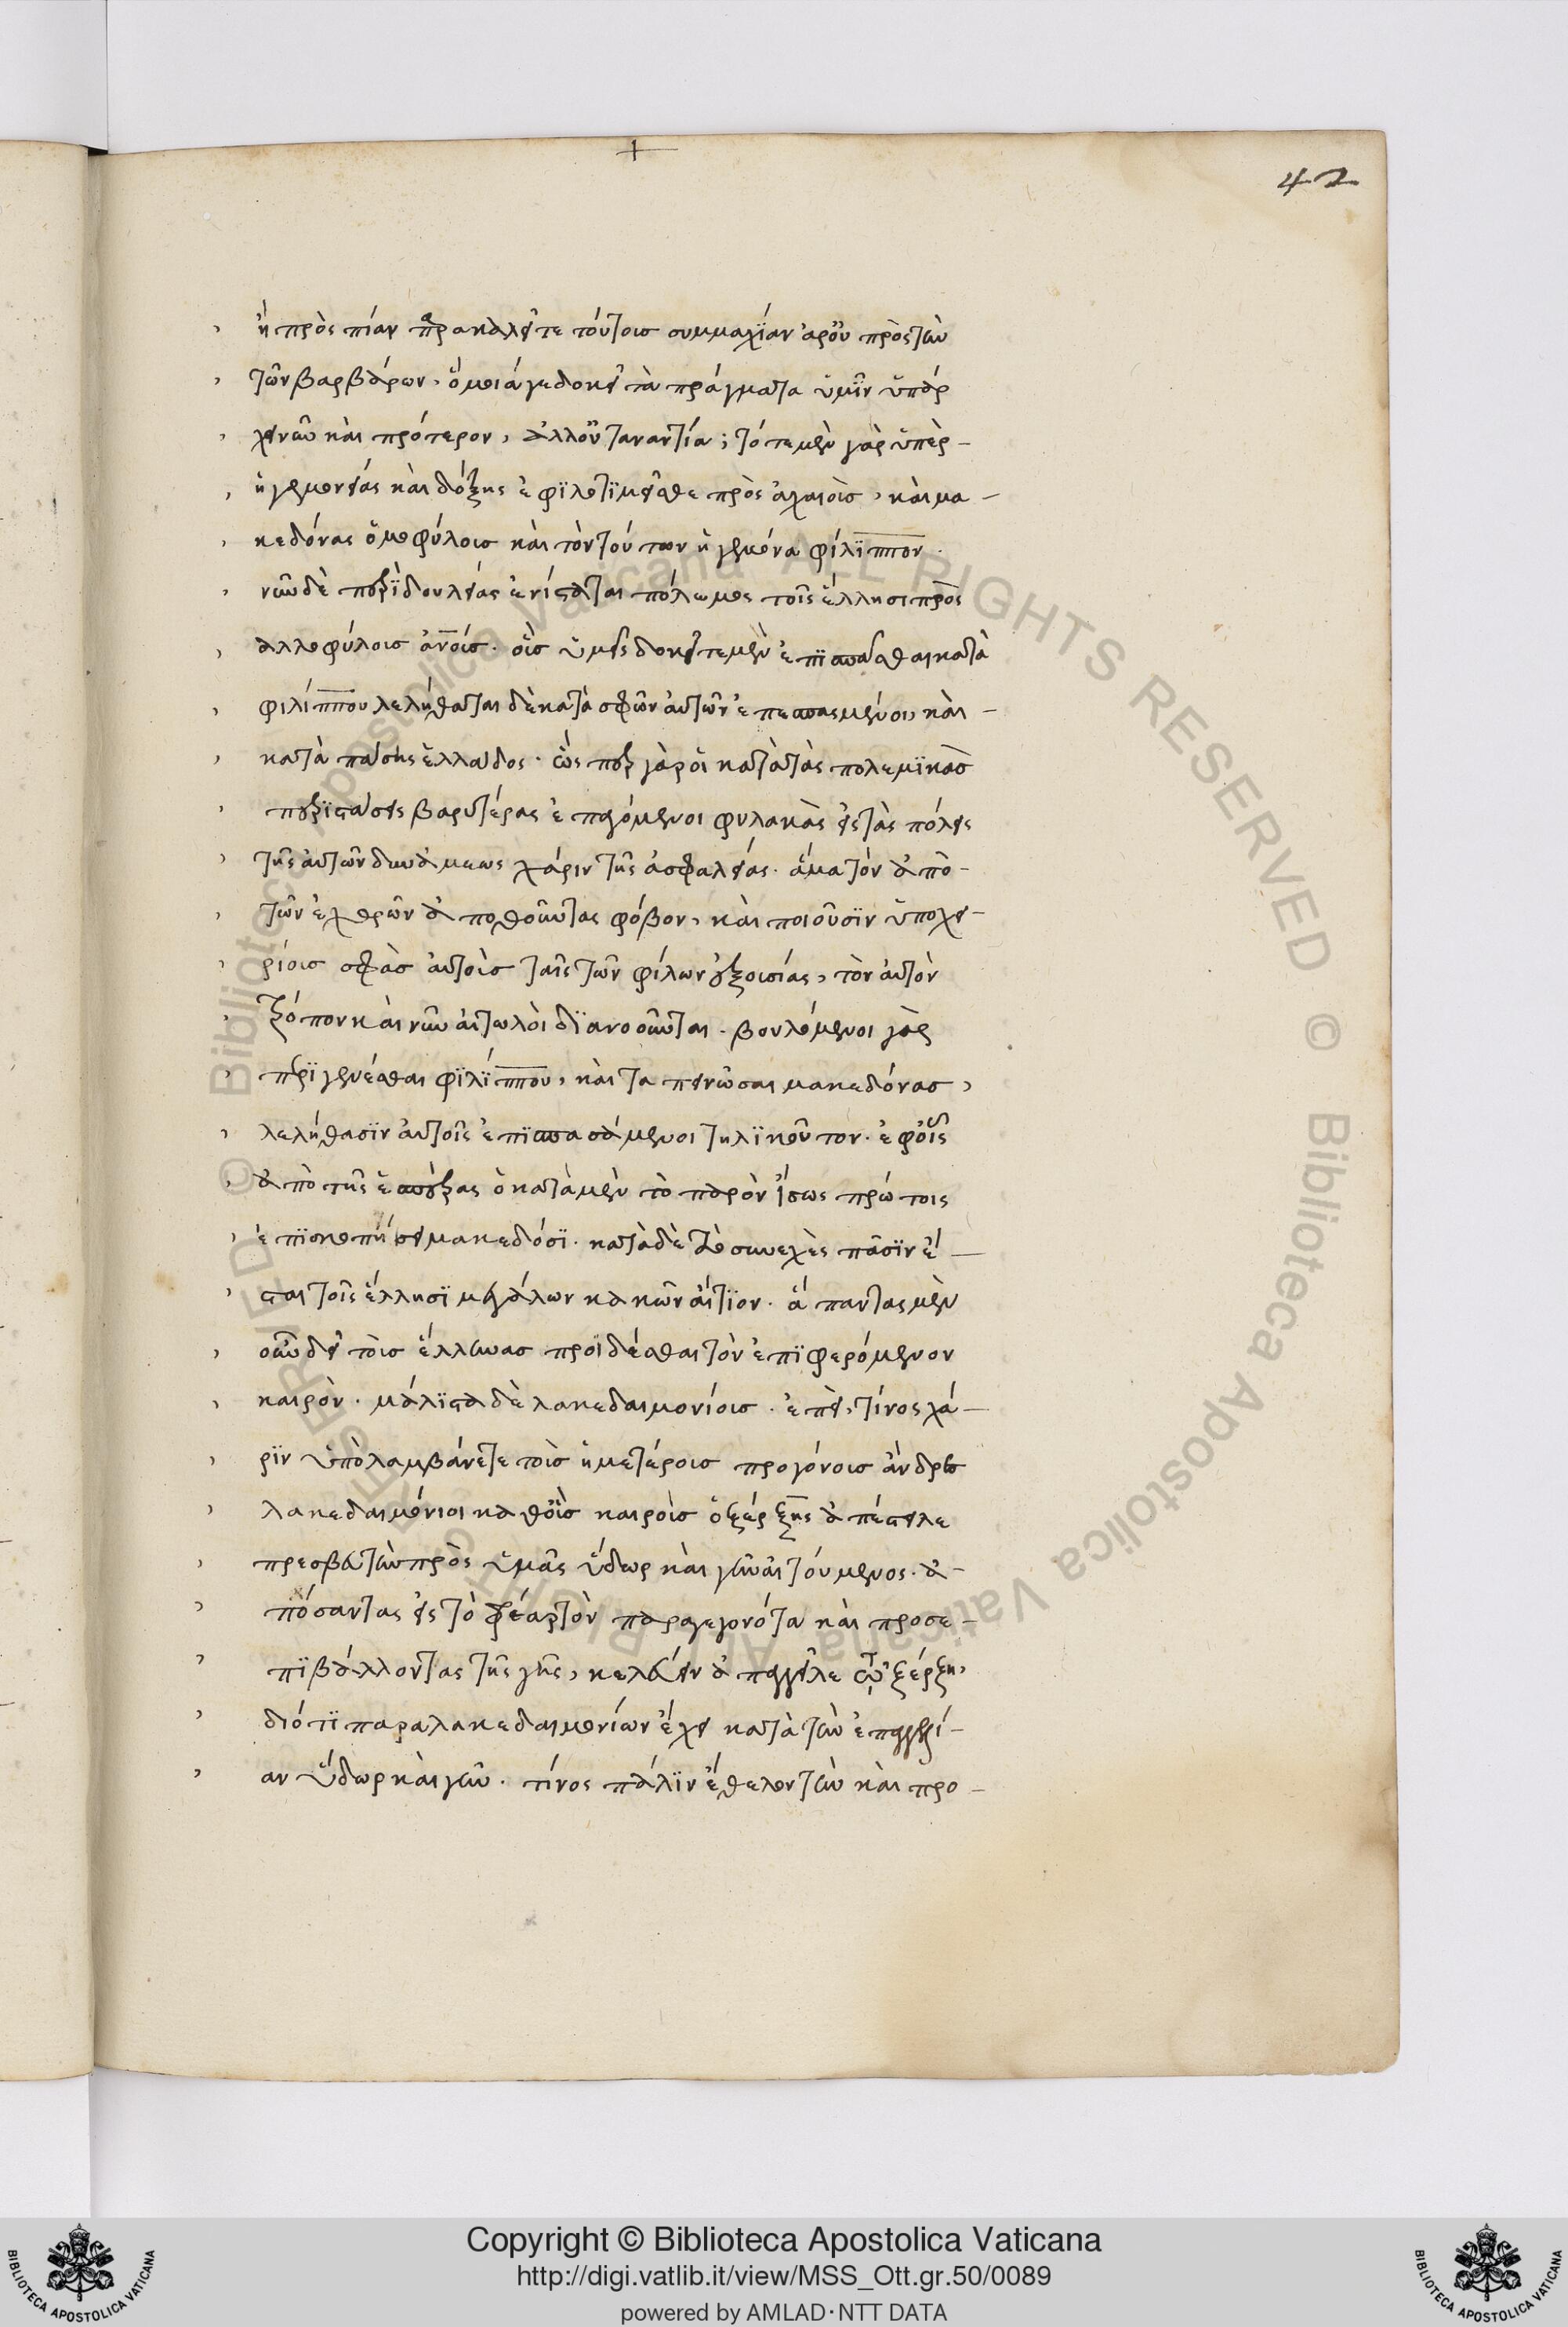 +
42
ἢ πρὸς πίαν παρακαλεῖτε τούτοις συμμαχίαν ἄρ' οὖν πρὸς τὴν
τῶν βαρβάρων. ὅμοιά γε δοκεῖ τὰ πράγματα ὑμῖν ὑπάρ
χειν νῦν καὶ πρότερον, ἀλλ' οὐ τἀναντία; τότε μὲν γὰρ ὑπὲρ-
ἡγεμονείας καὶ δόξης ἐφιλοτιμεῖσθε πρὸς ἀχαιοὺς, καὶ μα-
κεδόνας ὁμοφύλους καὶ τὸν τούτων ἡγεμόνα φίλιππον.
νῦν δὲ περὶ δουλείας ἐνίσταται πόλεμος τοῖς ἕλλησι πρὸς
ἀλλοφύλους ἀνους. οὓς ὑμεῖς δοκεῖτε μὲν ἐπισπᾶσθαι κατὰ
φιλίππου λελήθατε δὲ κατὰ σφῶν αὐτῶν ἐπεσπασμένοι, καὶ-
κατὰ πάσης ἑλλάδος. ὥσπερ γὰρ οἱ κατὰ τὰς πολεμικὰς
περιστάσεις βαρυτέρας ἐπαγόμενοι φυλακὰς εἰς τὰς πόλεις
τῆς αὐτῶν δυνάμεως χάριν τῆς ἀσφαλείας. ἅμα τὸν ἀπὸ-
τῶν ἐχθρῶν ἀπωθοῦνται φόβον, καὶ ποιοῦσιν ὑποχει-
ρίους σφᾶς αὐτοὺς ταῖς τῶν φίλων ἐξουσίαις, τὸν αὐτὸν
τρόπον καὶ νῦν αἰτωλοὶ διανοοῦνται. βουλόμενοι γὰρ
περιγενέσθαι φιλίππου, καὶ ταπεινῶσαι μακεδόνας,
λελήθασιν αὑτοῖς ἐπισπασάμενοι τηλικοῦτον. ἐφ' οἷς
ἀπὸ τῆς ἑσπέρας ὃ κατὰ μὲν τὸ παρὸν ἴσως πρώτοις
ἐπισκοπήσει μακεδόσι. κατὰ δὲ τὸ συνεχὲς πᾶσιν ἔ-
σται τοῖς ἕλλησι μεγάλων κακῶν αἴτιον. ἅπαντας μὲν
οὖν δεῖ τοὺς ἕλληνας προϊδέσθαι τὸν ἐπιφερόμενον
καιρὸν. μάλιστα δὲ λακεδαιμονίους. ἐπεὶ, τίνος χά-
ριν ὑπολαμβάνετε τοὺς ἡμετέρους προγόνους ἄνδρες
λακεδαιμόνιοι καθ' οὓς καιροὺς ὁ ξέρξης ἀπέστειλε
πρεσβευτὴν πρὸς ὑμᾶς ὕδωρ καὶ γῆν αἰτούμενος. ἀ-
πώσαντας εἰς τὸ φρέαρ τὸν παραγεγονότα καὶ προσε-
πιβάλλοντας τῆς γῆς, κελεύειν ἀπαγγεῖλαι τῷ ξέρξῃ,
διότι παρὰ λακεδαιμονίων ἔχει κατὰ τὴν ἐπαγγελί-
αν ὕδωρ καὶ γῆν. τίνος πάλιν ἐθελοντὴν καὶ προ-
© Biblioteca Apostolica Vaticana ALL RIGHTS RESERVED © Biblioteca Apostolica Vaticana ALL RIGHTS RESERVED
BIBLIOTECA APOSTOLICA VATICANA
Copyright © Biblioteca Apostolica Vaticana
http://digi.vatlib.it/view/MSS_Ott.gr.50/0089
powered by AMLAD·NTT DATA
BIBLIOTECA APOSTOLICA VATICANA